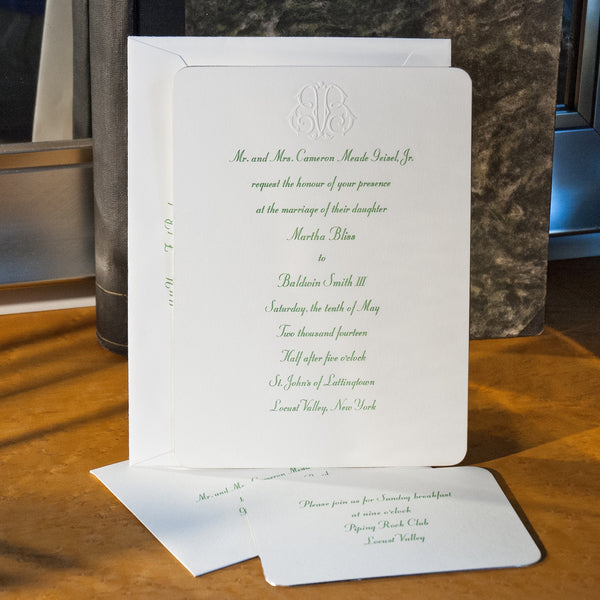 Mr. and Mrs. Cameron Meade Geisel, Jr.
request the honour of your presence
at the marriage of their daughter
Martha Bliss
to
Baldwin Smith III
Saturday, the tenth of May
Two thousand fourteen
Half after five o'clock
St. John's of Lattingtown
Locust Valley, New York
Mr. and Mrs. Cameron
Please join us for Sunday breakfast
at nine o'clock
Piping Rock Club
Locust Valley